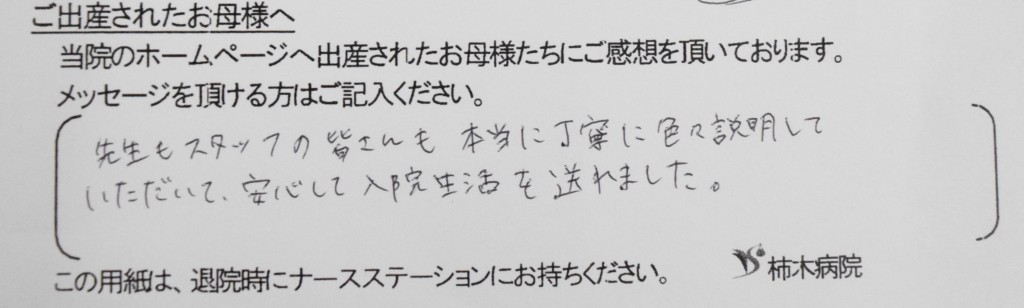 ご出産されたお母様へ
当院のホームページへ出産されたお母様たちにご感想を頂いております。
メッセージを頂ける方はご記入ください。
先生もスタッフの皆さんも本当に丁寧に色々説明して
いただいて、安心して入院生活を送れました。
この用紙は、退院時にナースステーションにお持ちください。
柿木病院